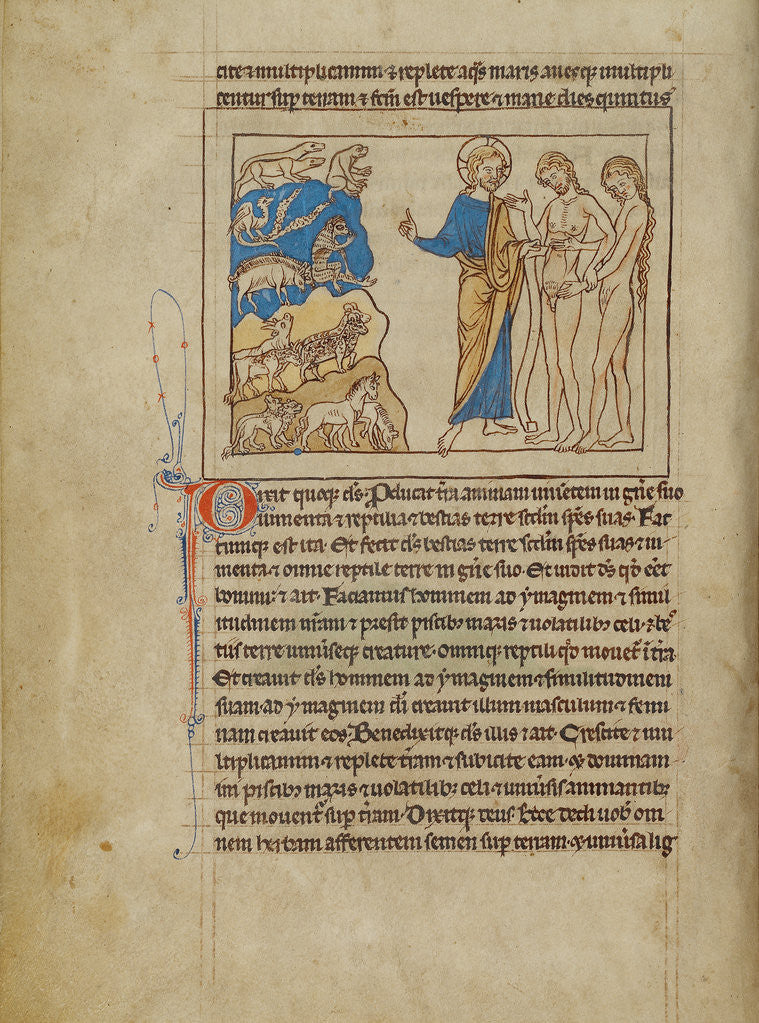 cite ⁊ multiplicamini ⁊ replete aq̄s maris auesq; multipli
centur suꝑ terram ⁊ fcm̄ est uespere ⁊ mane dies quintus
Dixit quoq; ds̄. Producat t̄ra animam uiuētem in gn̄e suo
iumenta ⁊ reptilia ⁊ bestias terre scd̄m sp̄es suas. Fac
tumq; est ita. Et fecit ds̄ bestias terre scd̄m sp̄es suas ⁊ iu
menta ⁊ omne reptile terre in gn̄e suo. Et uidit ds̄ qd̄ eēt
bonum ⁊ ait. Faciamus hominem ad ymaginem ⁊ simil
itudinem nr̄am ⁊ presit piscib; maris ⁊ uolatilib; celi ⁊ bes
tiis terre uniuseq; creature. omniq; reptili qd̄ mouet᷑ ī t̄ra
Et creauit ds̄ hominem ad ymaginem ⁊ similitudinem
suam. ad ymaginem di creauit illum masculum ⁊ femi
nam creauit eos. Benedixitq; ds̄ illis ⁊ ait. Crescite ⁊ mu
ltiplicamini ⁊ replete t̄ram ⁊ subicite eam. ⁊ dominam
ini piscib; maris ⁊ uolatilib; celi ⁊ uniūsis animantib;
que mouent᷑ suꝑ t̄ram. Dixitq; deus. Ecce dedi uob̄ om
nem herbam afferentem semen suꝑ terram. ⁊ uniūsa lig